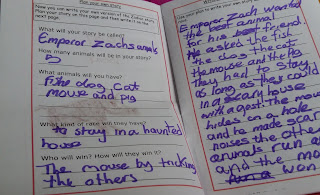 your own story
Now you can write your own version of the Zodiac story.
Plan your story on this page and then write it on the
next page.
What will your story be called?
Emperor Zachs animals
How many animals will be in your story?
5
What animals will you have?
Fish dog cat
mouse and pig
What kind of race will they have?
to stay in a haunted
house
Who will win? How will they win it?
The mouse by tricking
the others
Write your
Use your plan to write your own
Emperor Zach wanted
the best animal
for his best friend.
He asked the fish
the dog the cat
the mouse and the pig
they had to stay
as long as they could
in a scary house
with a gost. The mouse
hides in a hole
and he made scary
noises the other
animals run a
and the mo
won